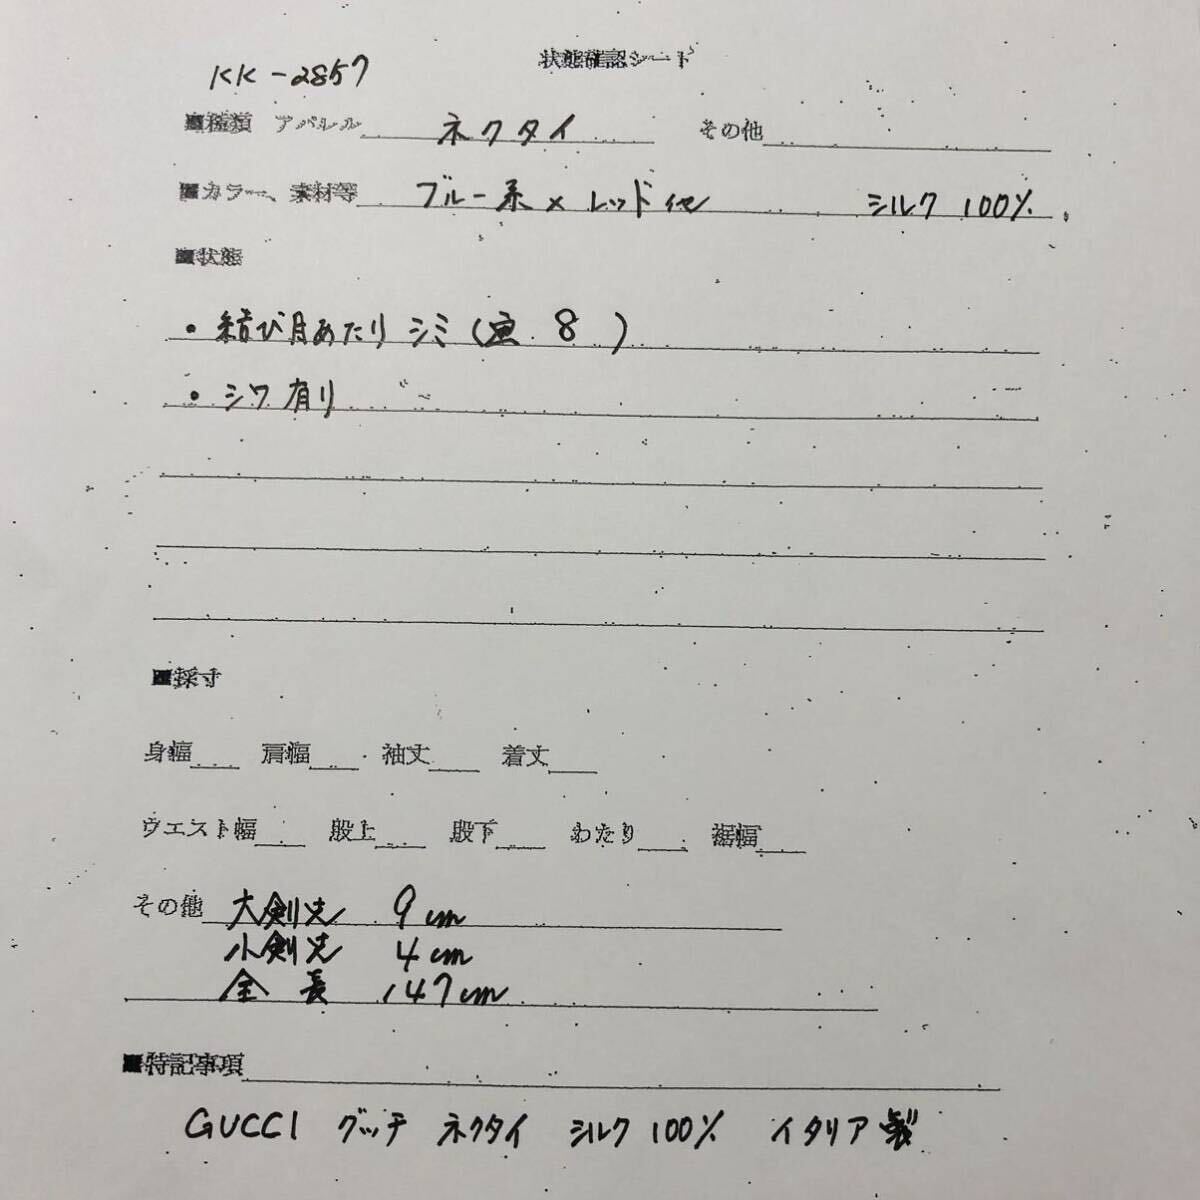 状態確認シート
KK-2857
■種類 アパレル ネクタイ その他
■カラー、素材等 ブルー系×レッド他 シルク100%.
■状態
・結び目あたりシミ(画 8 )
・シワ有り
■採寸
身幅 肩幅 袖丈 着丈
ウエスト幅 股上 股下 わたり 裾幅
その他 大剣先 9cm
小剣先 4cm
全長 147cm
■特記事項
GUCCI グッチ ネクタイ シルク100% イタリア製